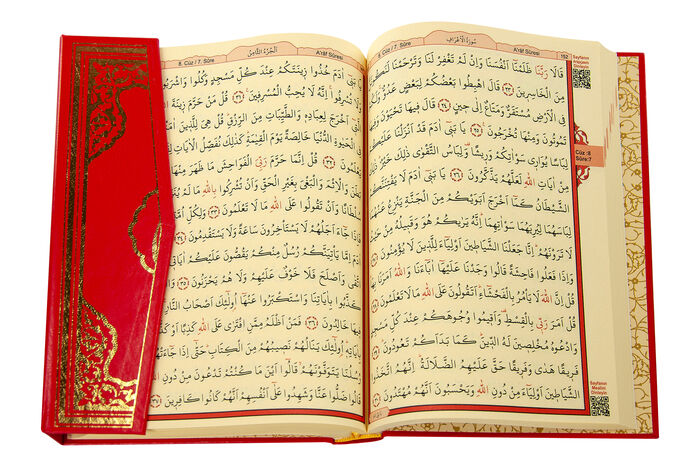 8. Cüz / 7. Sûre سُورَةُ الْأَعْرَافِ A'râf Sûresi 152
قَالَا رَبَّنَا ظَلَمْنَا اَنْفُسَنَا وَاِنْ لَمْ تَغْفِرْ لَنَا وَتَرْحَمْنَا لَنَكُونَنَّ
مِنَ الْخَاسِرِينَ ﴿٢٣﴾ قَالَ اهْبِطُوا بَعْضُكُمْ لِبَعْضٍ عَدُوٌّ وَلَكُمْ
فِي الْاَرْضِ مُسْتَقَرٌّ وَمَتَاعٌ اِلٰى حِينٍ ﴿٢٤﴾ قَالَ فِيهَا تَحْيَوْنَ وَفِيهَا
تَمُوتُونَ وَمِنْهَا تُخْرَجُونَ ﴿٢٥﴾ يَا بَنِي اٰدَمَ قَدْ اَنْزَلْنَا عَلَيْكُمْ
لِبَاسًا يُوَارِي سَوْاٰتِكُمْ وَرِيشًا وَلِبَاسُ التَّقْوٰى ذٰلِكَ خَيْرٌ ذٰلِكَ
مِنْ اٰيَاتِ اللّٰهِ لَعَلَّهُمْ يَذَّكَّرُونَ ﴿٢٦﴾ يَا بَنِي اٰدَمَ لَا يَفْتِنَنَّكُمُ
الشَّيْطَانُ كَمَا اَخْرَجَ اَبَوَيْكُمْ مِنَ الْجَنَّةِ يَنْزِعُ عَنْهُمَا
لِبَاسَهُمَا لِيُرِيَهُمَا سَوْاٰتِهِمَا اِنَّهُ يَرٰيكُمْ هُوَ وَقَبِيلُهُ مِنْ حَيْثُ
لَا تَرَوْنَهُمْ اِنَّا جَعَلْنَا الشَّيَاطِينَ اَوْلِيَاءَ لِلَّذِينَ لَا يُؤْمِنُونَ ﴿٢٧﴾
وَاِذَا فَعَلُوا فَاحِشَةً قَالُوا وَجَدْنَا عَلَيْهَا اٰبَاءَنَا وَاللّٰهُ اَمَرَنَا بِهَا
قُلْ اِنَّ اللّٰهَ لَا يَأْمُرُ بِالْفَحْشَاءِ اَتَقُولُونَ عَلَى اللّٰهِ مَا لَا تَعْلَمُونَ ﴿٢٨﴾
قُلْ اَمَرَ رَبِّي بِالْقِسْطِ وَاَقِيمُوا وُجُوهَكُمْ عِنْدَ كُلِّ مَسْجِدٍ
وَادْعُوهُ مُخْلِصِينَ لَهُ الدِّينَ كَمَا بَدَاَكُمْ تَعُودُونَ ﴿٢٩﴾
فَرِيقًا هَدٰى وَفَرِيقًا حَقَّ عَلَيْهِمُ الضَّلَالَةُ اِنَّهُمُ اتَّخَذُوا
الشَّيَاطِينَ اَوْلِيَاءَ مِنْ دُونِ اللّٰهِ وَيَحْسَبُونَ اَنَّهُمْ مُهْتَدُونَ ﴿٣٠﴾
Sayfanın
Arapçasını
Dinleyin
Cüz :8
Sûre:7
Sayfanın
Mealini
Dinleyin
8. Cüz / 7. Sûre اَلْجُزْءُ الثَّامِنُ A'râf Sûresi
يَا بَنِي اٰدَمَ خُذُوا زِينَتَكُمْ عِنْدَ كُلِّ مَسْجِدٍ وَكُلُوا وَاشْرَبُوا
وَلَا تُسْرِفُوا اِنَّهُ لَا يُحِبُّ الْمُسْرِفِينَ ﴿٣١﴾ قُلْ مَنْ حَرَّمَ زِينَةَ اللّٰهِ
الَّتِي اَخْرَجَ لِعِبَادِهِ وَالطَّيِّبَاتِ مِنَ الرِّزْقِ قُلْ هِيَ لِلَّذِينَ اٰمَنُوا
فِي الْحَيٰوةِ الدُّنْيَا خَالِصَةً يَوْمَ الْقِيٰمَةِ كَذٰلِكَ نُفَصِّلُ الْاٰيَاتِ
لِقَوْمٍ يَعْلَمُونَ ﴿٣٢﴾ قُلْ اِنَّمَا حَرَّمَ رَبِّيَ الْفَوَاحِشَ مَا ظَهَرَ مِنْهَا
وَمَا بَطَنَ وَالْاِثْمَ وَالْبَغْيَ بِغَيْرِ الْحَقِّ وَاَنْ تُشْرِكُوا بِاللّٰهِ مَا لَمْ يُنَزِّلْ
بِهِ سُلْطَانًا وَاَنْ تَقُولُوا عَلَى اللّٰهِ مَا لَا تَعْلَمُونَ ﴿٣٣﴾ وَلِكُلِّ اُمَّةٍ
اَجَلٌ فَاِذَا جَاءَ اَجَلُهُمْ لَا يَسْتَأْخِرُونَ سَاعَةً وَلَا يَسْتَقْدِمُونَ ﴿٣٤﴾
يَا بَنِي اٰدَمَ اِمَّا يَأْتِيَنَّكُمْ رُسُلٌ مِنْكُمْ يَقُصُّونَ عَلَيْكُمْ اٰيَاتِي
فَمَنِ اتَّقٰى وَاَصْلَحَ فَلَا خَوْفٌ عَلَيْهِمْ وَلَا هُمْ يَحْزَنُونَ ﴿٣٥﴾
وَالَّذِينَ كَذَّبُوا بِاٰيَاتِنَا وَاسْتَكْبَرُوا عَنْهَا اُولٰئِكَ اَصْحَابُ النَّارِ
هُمْ فِيهَا خَالِدُونَ ﴿٣٦﴾ فَمَنْ اَظْلَمُ مِمَّنِ افْتَرٰى عَلَى اللّٰهِ كَذِبًا اَوْ
كَذَّبَ بِاٰيَاتِهِ اُولٰئِكَ يَنَالُهُمْ نَصِيبُهُمْ مِنَ الْكِتَابِ حَتّٰى اِذَا جَاءَتْهُمْ
رُسُلُنَا يَتَوَفَّوْنَهُمْ قَالُوا اَيْنَ مَا كُنْتُمْ تَدْعُونَ مِنْ دُونِ اللّٰهِ
قَالُوا ضَلُّوا عَنَّا وَشَهِدُوا عَلٰى اَنْفُسِهِمْ اَنَّهُمْ كَانُوا كَافِرِينَ ﴿٣٧﴾